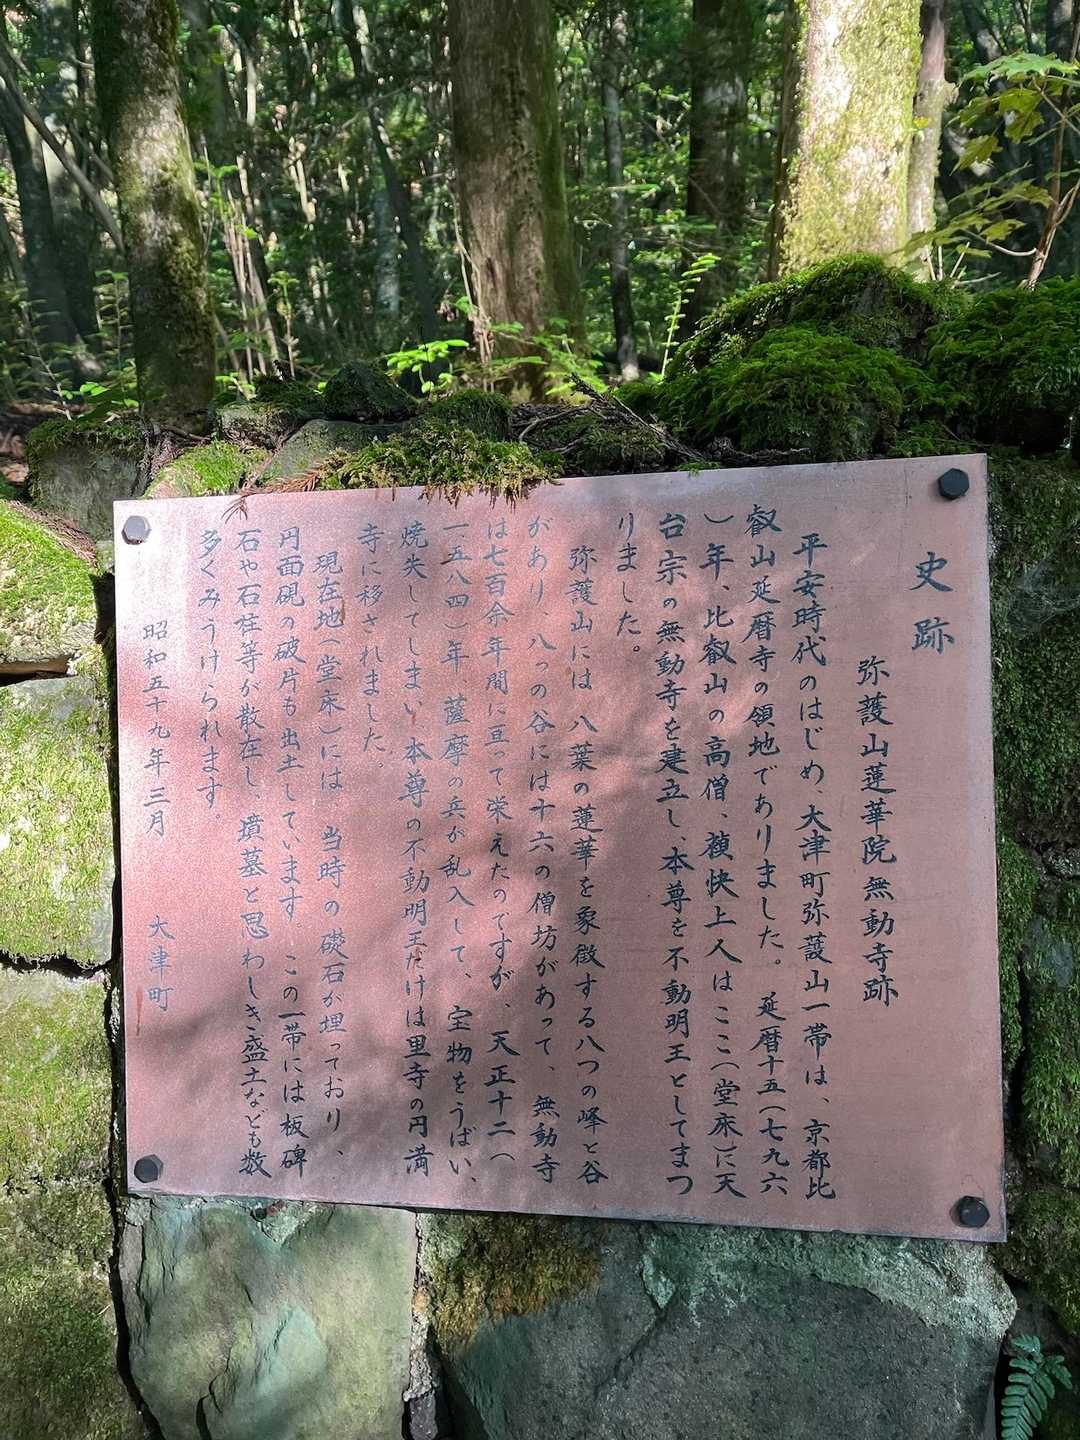 史跡
弥護山蓮華院無動寺跡
平安時代のはじめ、大津町弥護山一帯は、京都比
叡山延暦寺の領地でありました。 延暦十五(七九六
)年、比叡山の高僧、 快上人はここ(堂床)に天
台宗の無動寺を建立し、本尊を不動明王としてまつ
りました。
弥護山には 八葉の蓮華を象徴する八つの峰と谷
があり、八っの谷には十六の僧坊があって、無動寺
は七百余年間に亘って栄えたのですが、天正十二(
一五八四)年、薩摩の兵が乱入して、宝物をうばい、
焼失してしまい 本尊の不動明王だけは里寺の円満
寺に移されました。
現在地(堂床)には 当時の礎石が埋っており、
円面硯の破片も出土しています。この一帯には板碑
石や石 等が散在し、墳墓と思わしき盛土なども数
多くみうけられます。
昭和五十九年三月 大津町